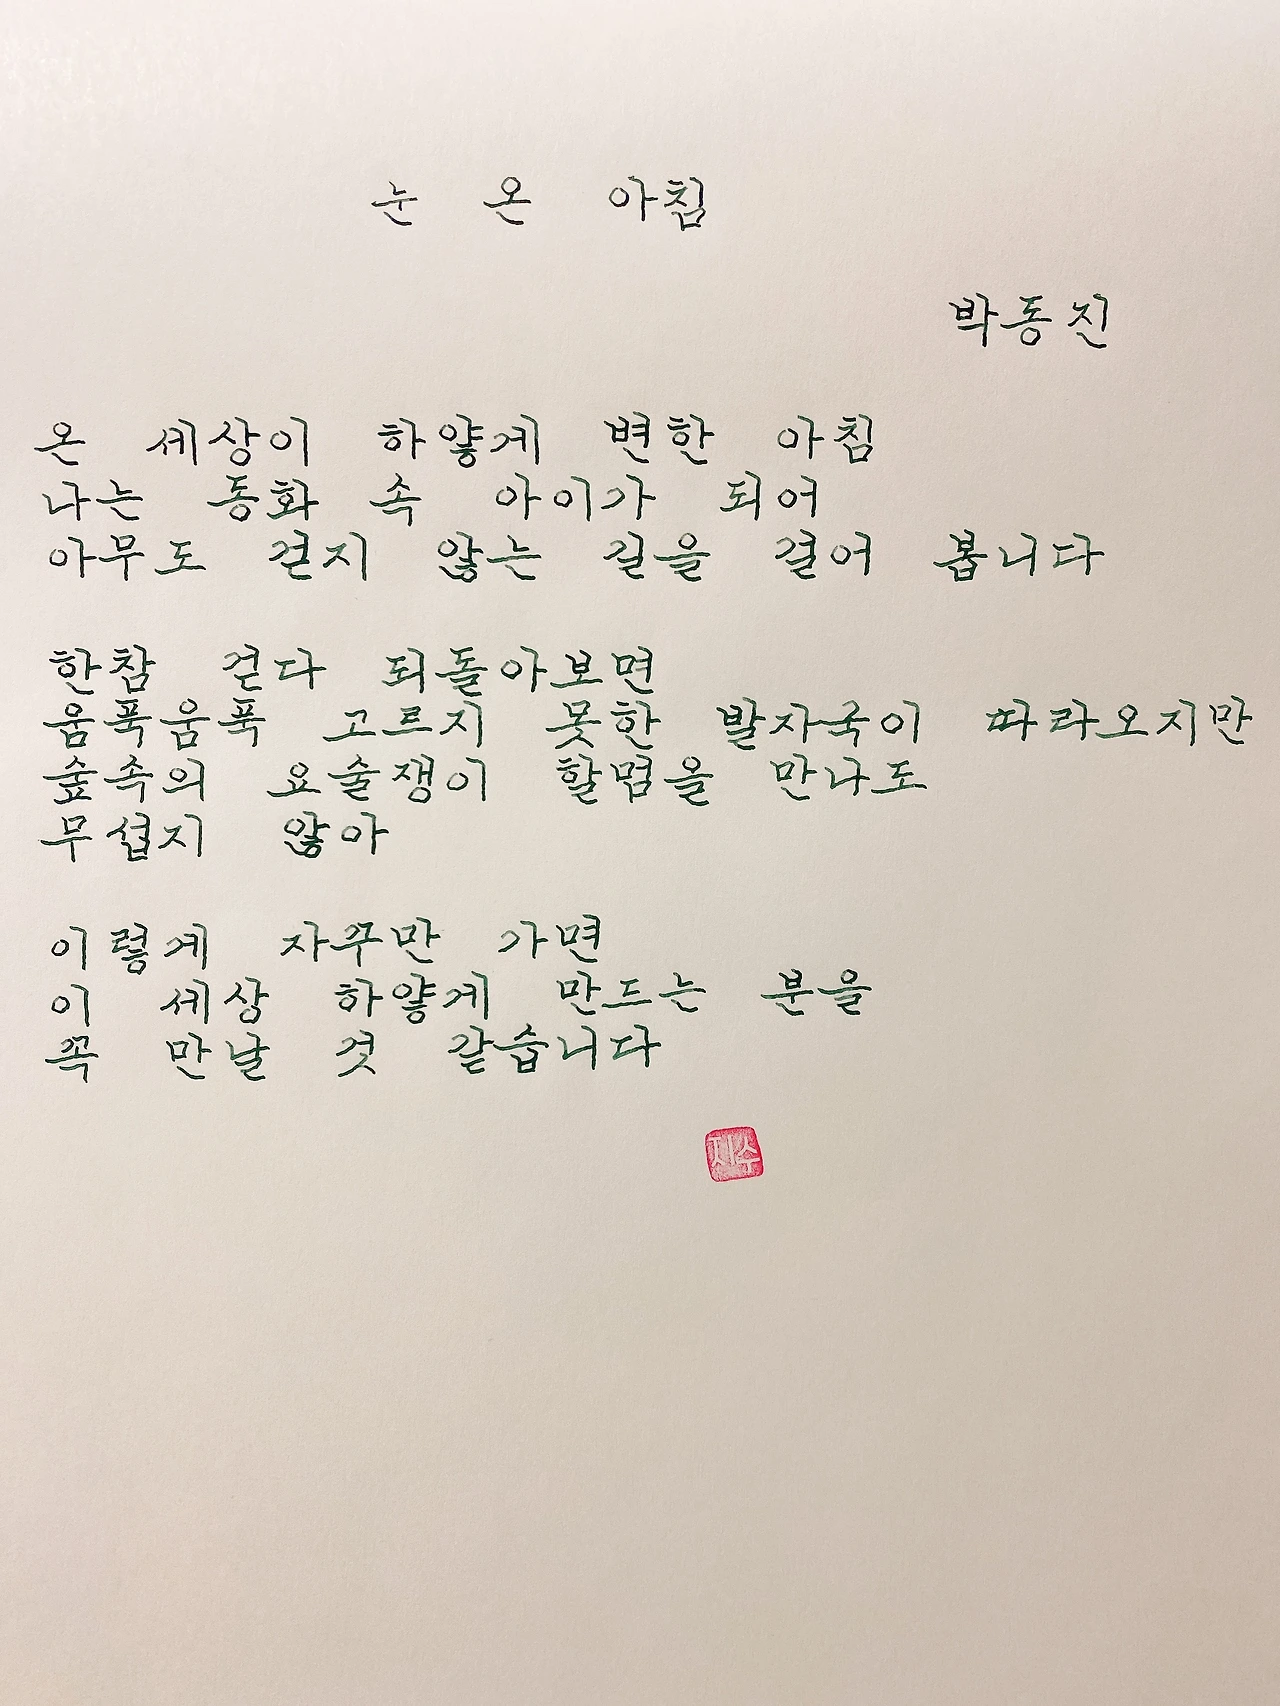 눈 온 아침
박동진
온 세상이 하얗게 변한 아침
나는 동화 속 아이가 되어
아무도 걷지 않는 길을 걸어 봅니다
한참 걷다 되돌아보면
움푹움푹 고르지 못한 발자국이 따라오지만
숲속의 요술쟁이 할멈을 만나도
무섭지 않아
이렇게 자꾸만 가면
이 세상 하얗게 만드는 분을
꼭 만날 것 같습니다
지수